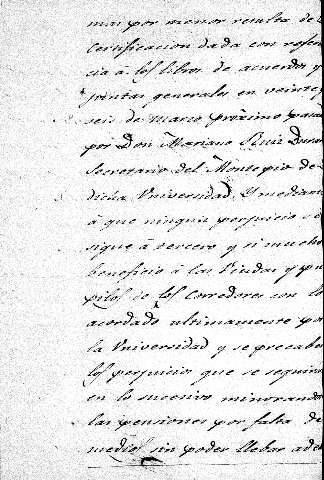 mas por menor resulta de
Certificacion dada con referen
cia á los libros de acuerdos y
juntas generales en veinte y
seis de Marzo próximo pasa
por Don Mariano Ruiz
Secretario del Montepio de
dicha Universidad. Y mediante
á que ningun perjuicio se
sigue á tercero y si mucho
beneficio á las Viudas y pu
pilos de los Corredores con lo
acordado ultimamente por
la Universidad y se precabe
los perjuicios que se seguiria
en lo sucesivo minorando
las pensiones por falta de
medios sin poder llebar ade